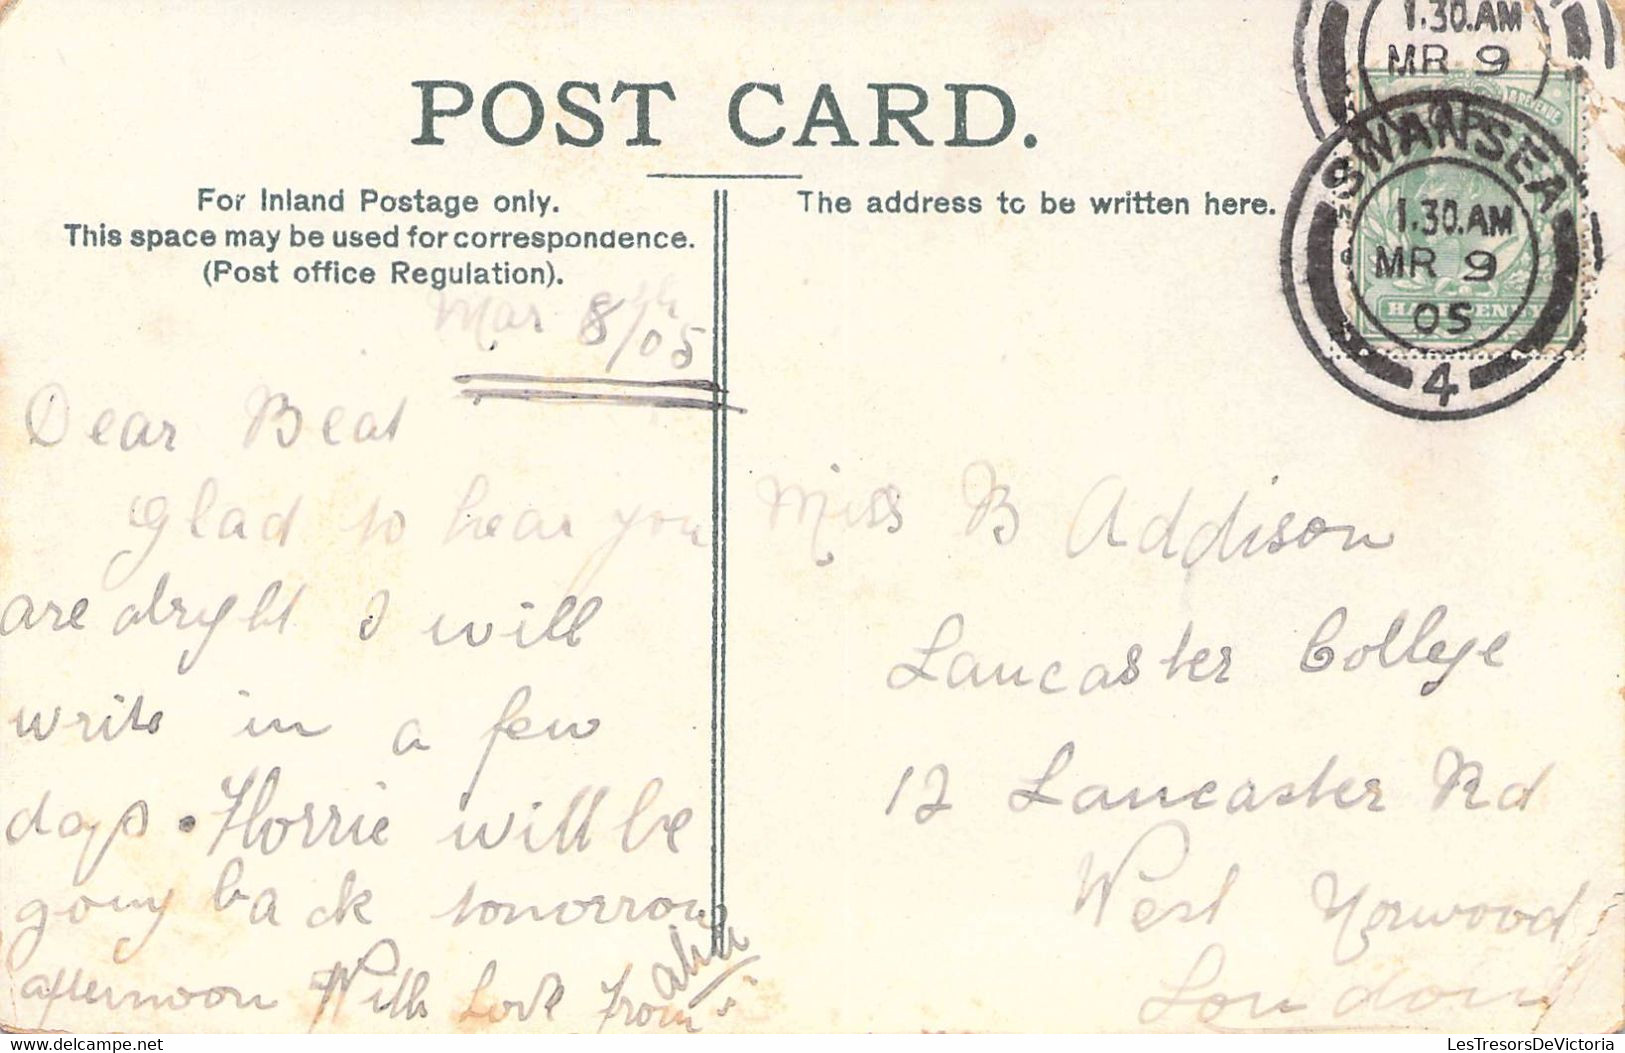 1.30.AM
MR 9
& REVENUE
POST CARD.
SWANSEA
1.30.AM
MR 9
05
4
HALFPENNY
For Inland Postage only.
This space may be used for correspondence.
(Post office Regulation).
The address to be written here.
Mar 8th/05
Dear Beat
Glad to hear you
are alryght I will
write in a few
days. Horrie will be
going back tomorrow
afternoon With Love From
Miss B Addison
Lancaster College
12 Lancaster Rd
West Norwood
London
LesTresorsDeVictoria.delcampe.net